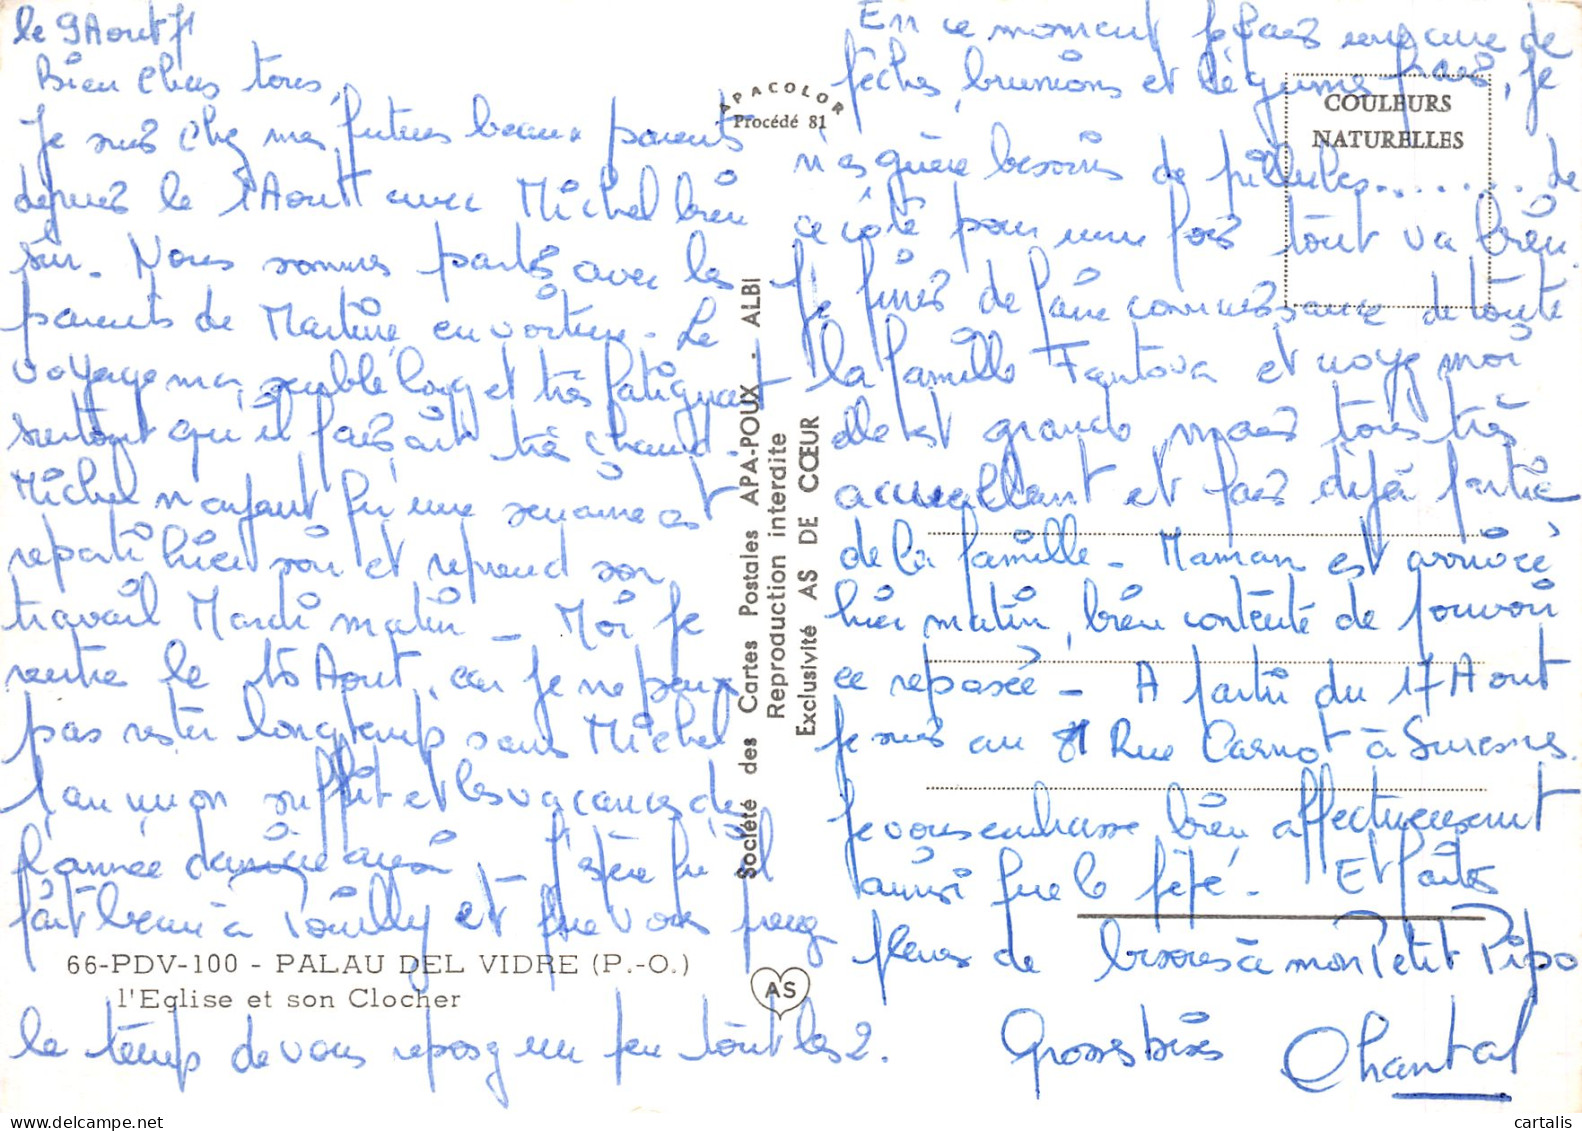 le 9 Aout 71
Bien Chers tous,
Je suis chez mes futurs beaux parents
depuis le 1 Aout avec Michel bien
sûr. Nous sommes partis avec les
parents de Martine en voiture. Le
voyage m'a semblé long et très fatiguant
surtout qu'il faisait très chaud.
Michel n'ayant qu'une semaine est
reparti hier soir et reprend son
travail Mardi matin - Moi je
rentre le 15 Aout, car je ne peux
pas rester longtemp sans Michel
1 an nous suffit et les vacances de
l'année dernière aussi. J'espère qu'il
fait beau à Touilly et que vous prenez
le temps de vous reposez un peu tout les 2.
En ce moment je fais une cure de
pêches, brunions et légumes frais, je
n'es guère besoins de pillules........ de
ce côté pour une fois tout va bien.
Je finis de faire connaissance de toute
la famille Fantova et croyez moi
elle est grande mais tous très
accueillant et fais déjà partie
de la famille - Maman est arrivée
hier matin, bien contente de pouvoir
ce reposée - A partir du 17 Aout
je suis au 81 Rue Carnot à Suresnes.
Je vous embrasse bien affectueusement
ainsi que le fété. Et faites
pleins de bisoues à mon Petit Pipo
Grosses bises Chantal
APACOLOR
Procédé 81
COULEURS
NATURELLES
Société des Cartes Postales APA-POUX - ALBI
Reproduction interdite
Exclusivité AS DE CŒUR
66-PDV-100 - PALAU DEL VIDRE (P.-O.)
l'Eglise et son Clocher
AS
cartalis